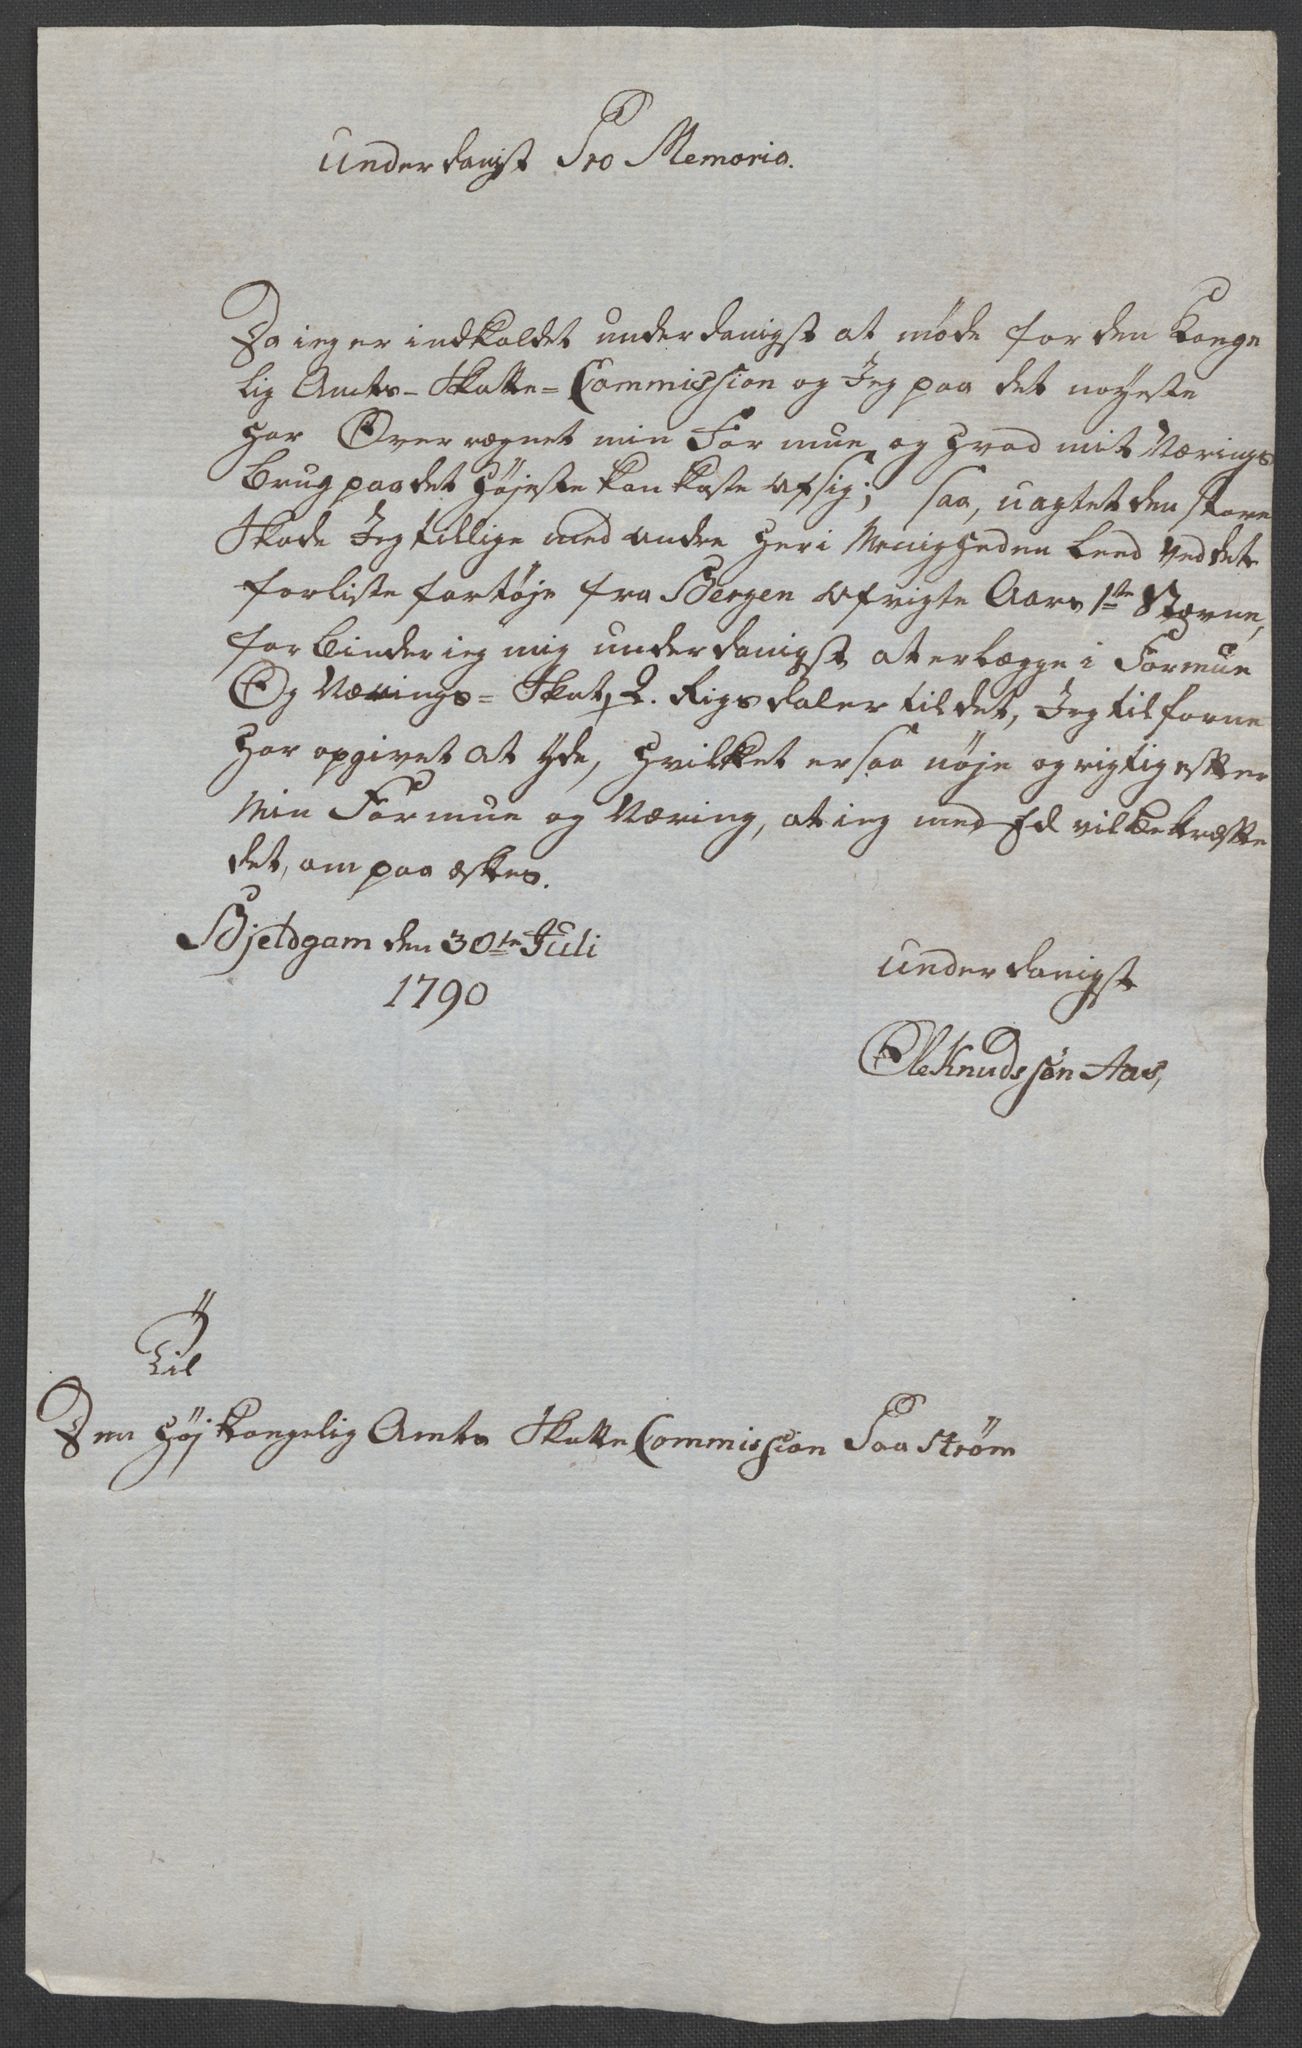 Underdanigst Pro Memoria.
Da ieg er indkaldet underdanigst at møde for den Konge
lig Amts- Skatte- Commission og Jeg paa det nøyeste
har Overregnet min Formue og hvad mit Nærings
brug paa det Højeste kan kaste af sig; saa, uagtet den store
Skade Jeg tillige med andre her i Menigheden leed ved det
forliste fartøje fra Bergen afvigte Aars 1ste Stævne,
forbinder ieg mig underdanigst at erlægge i Formue
Og Nærings- Skat, 2. Rigsdaler til det, Jeg tilforne
har opgivet at Yde, hvilket er saa nøje og rigtig efter
Min Formue og Næring, at ieg med Ed vil bekræfte
det, om paa æskes.
Bjeldgam den 30te Juli
1790
underdanigst
Ole Knudssøn Aas,
Til
Den høj kongelig Amts Skatte Commission Paa Strøm